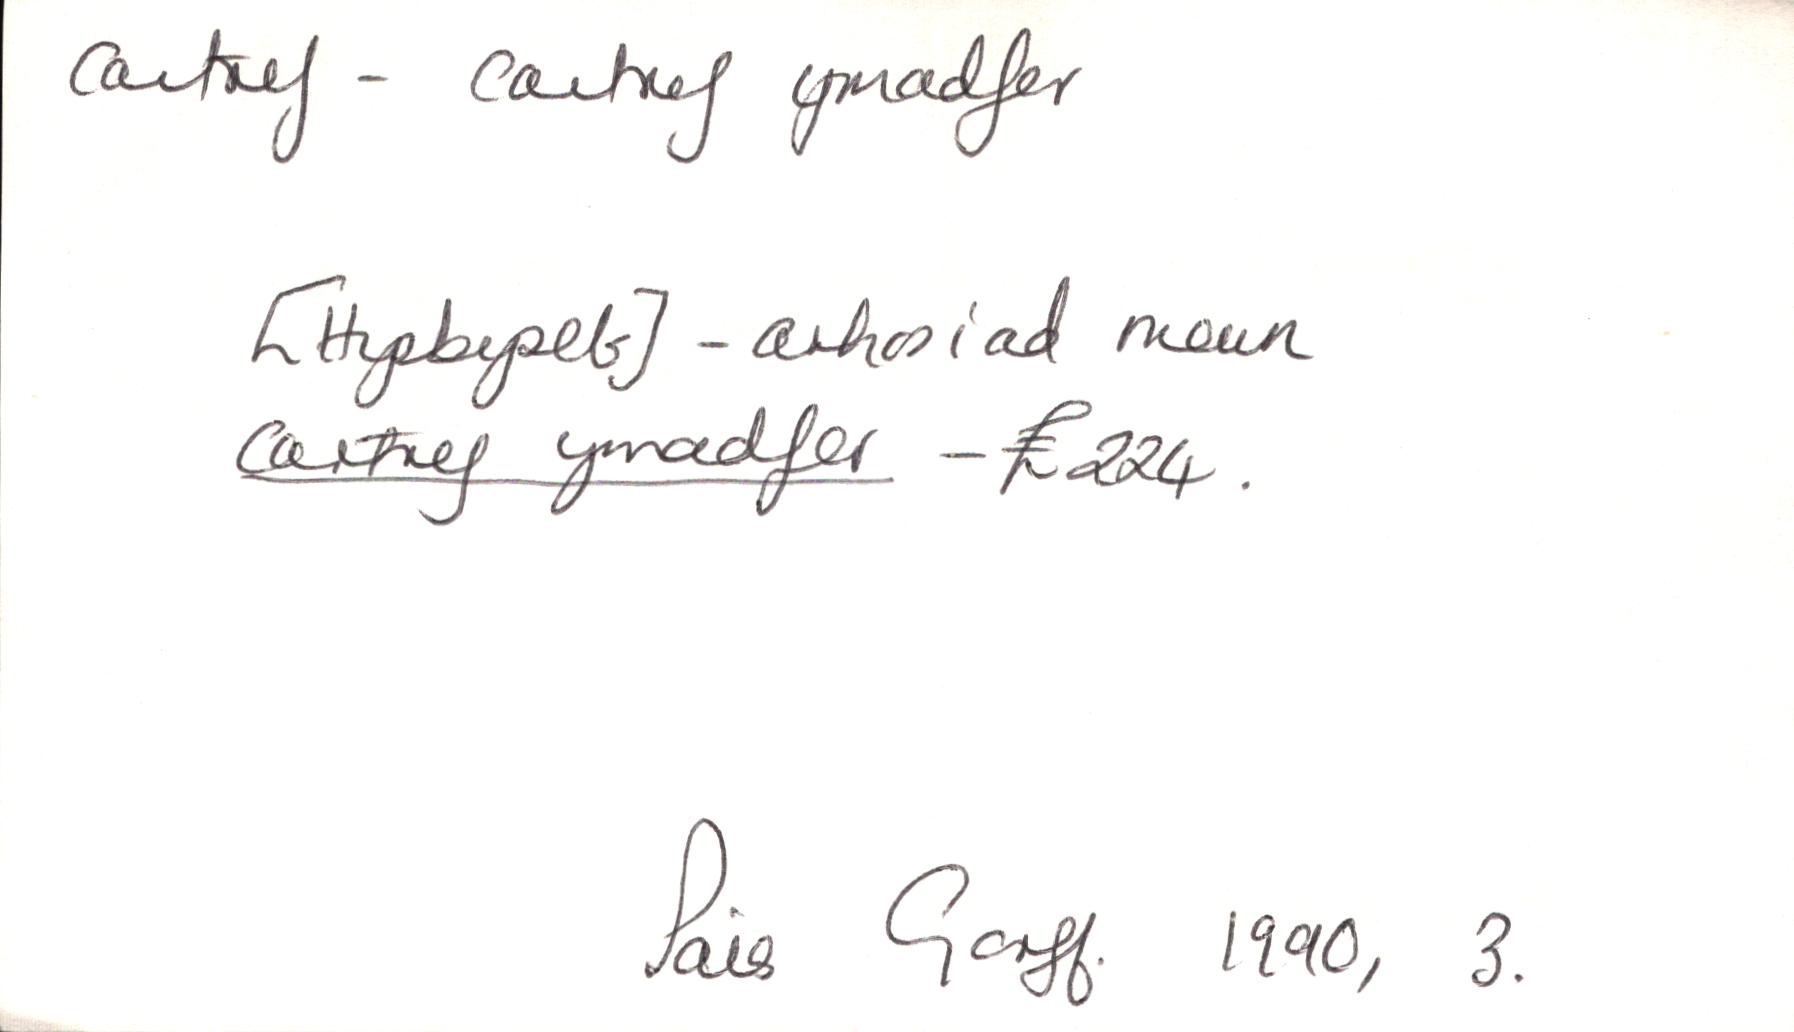 cartref - cartref ymadfer
[Hysbyseb] - arhosiad mewn
cartref ymadfer - £224.
Pais Gorff. 1990, 3.